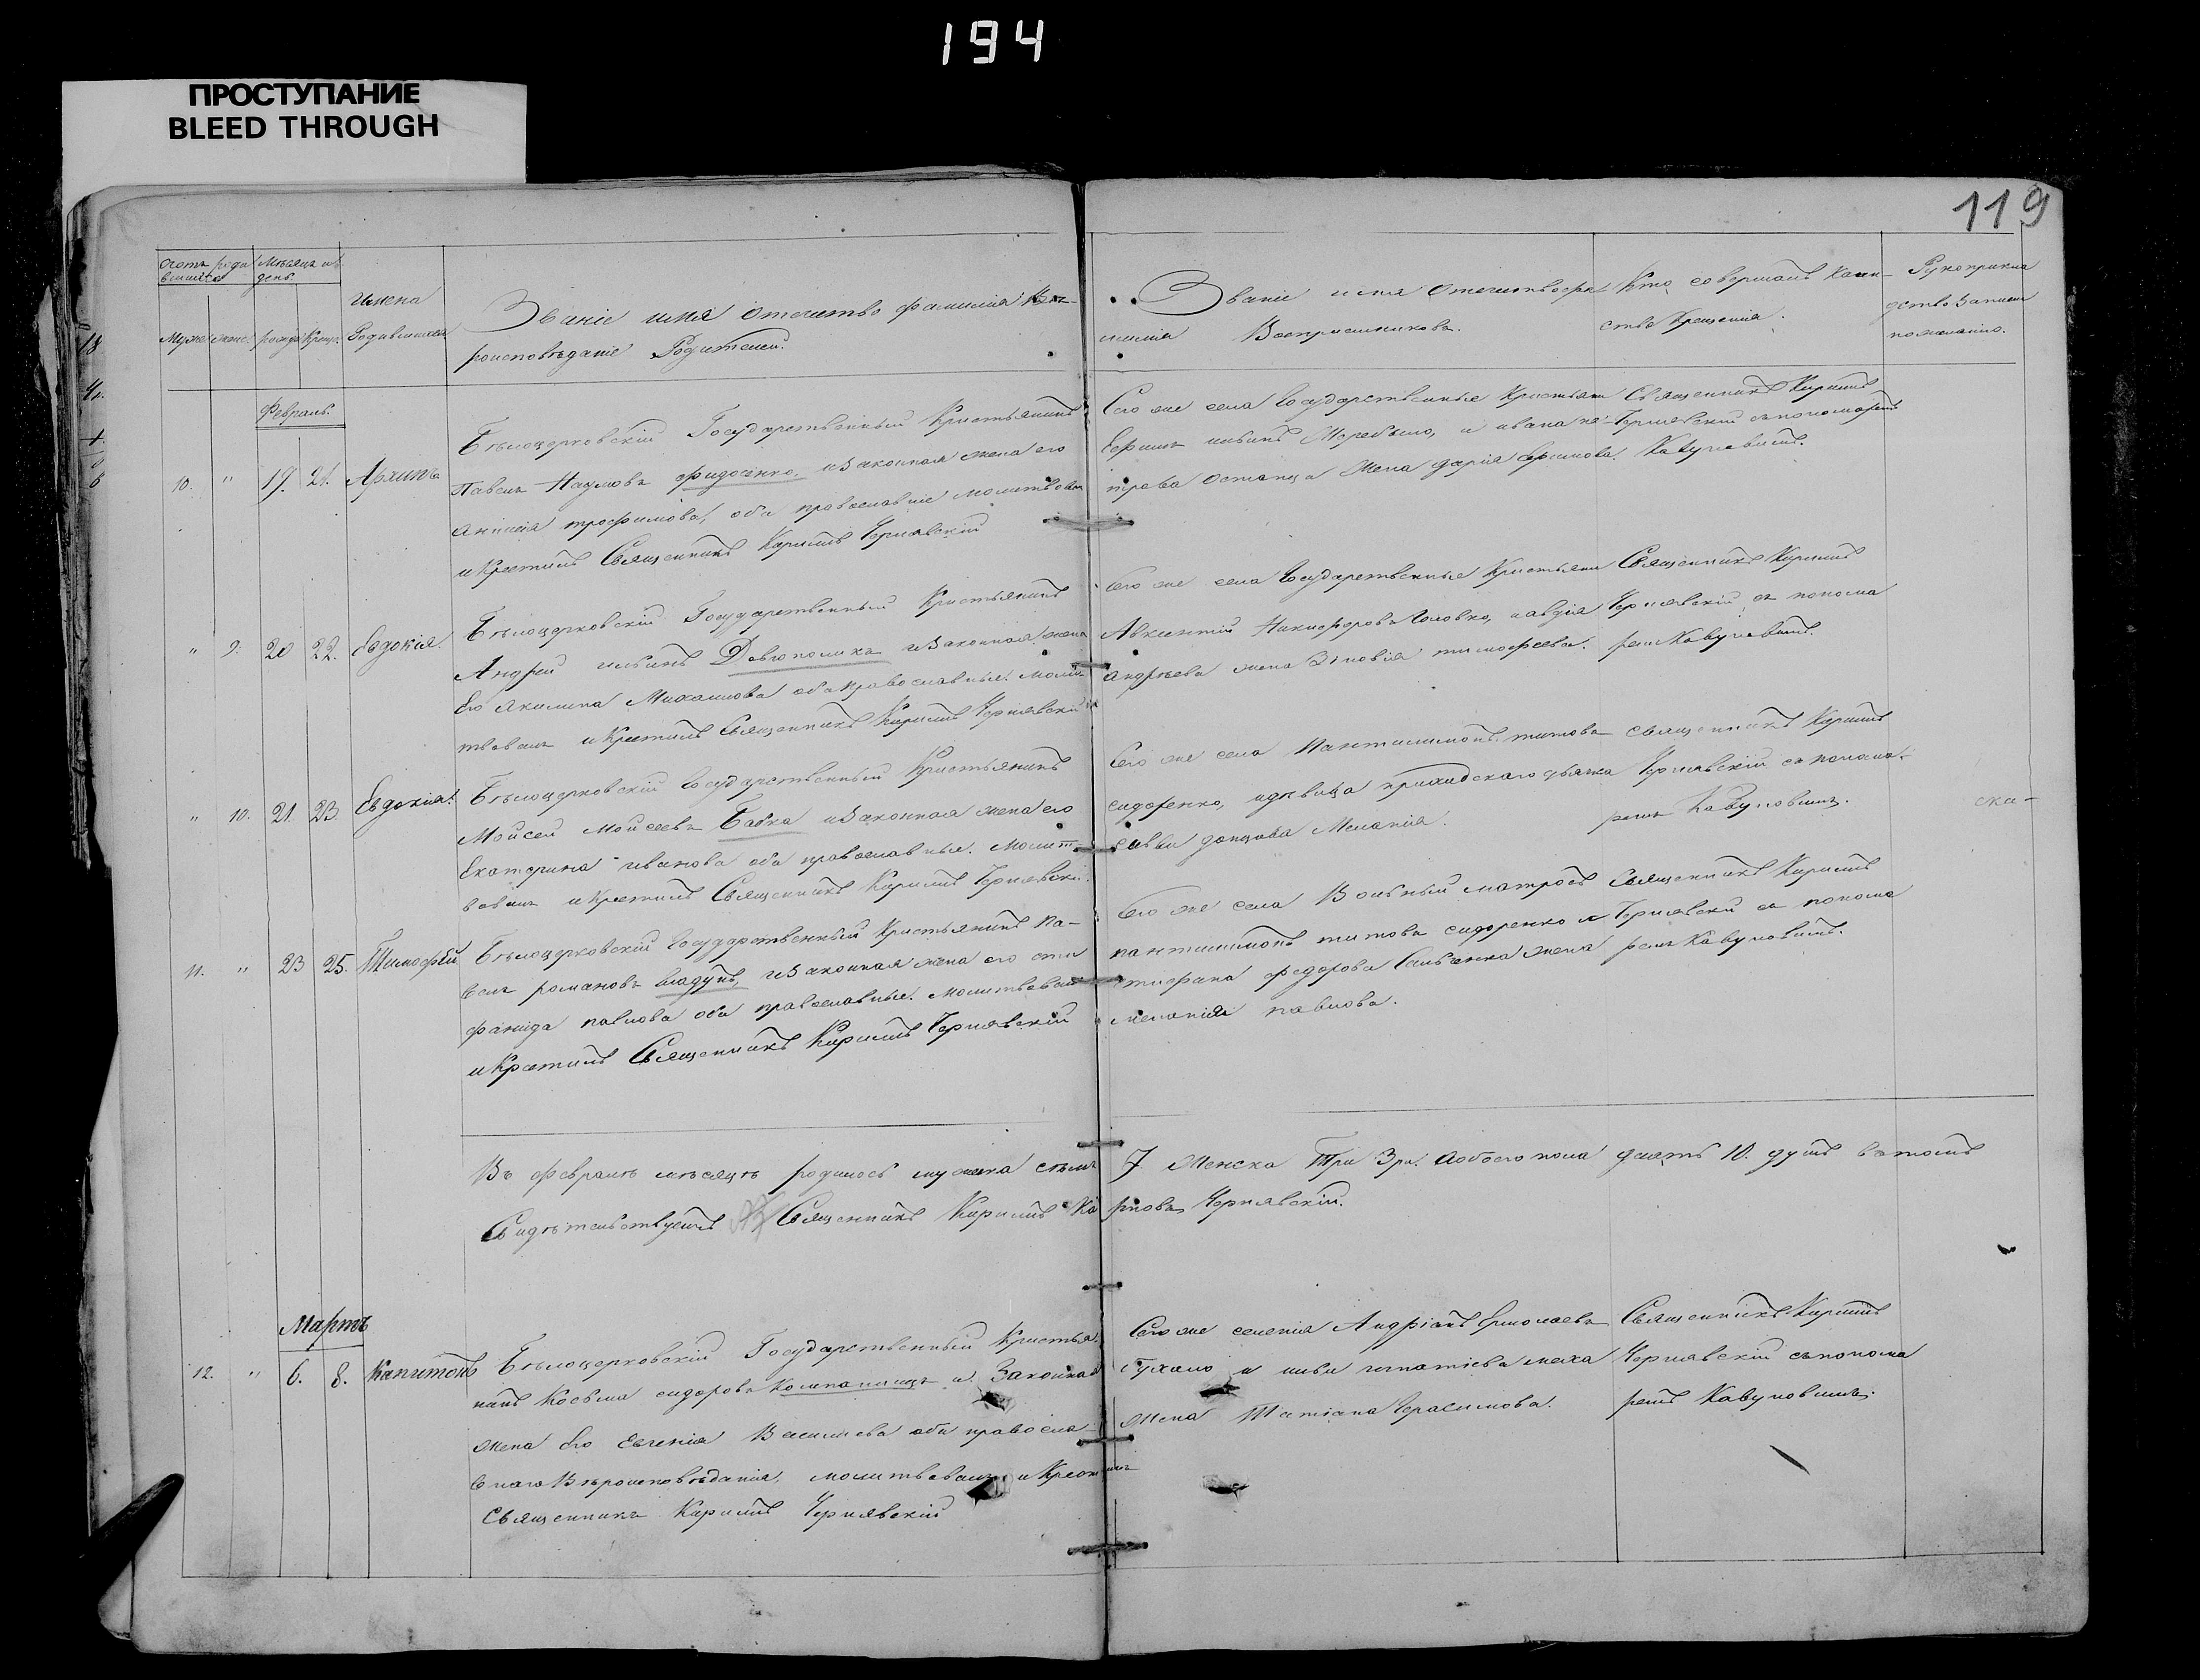 194
ПРОСТУПАНИЕ
BLEED THROUGH
119
Имена
Званіе имя отечество фамилія Вѣ-
роисповѣданіе Родителей.
Званіе имя отечество фа
милія Восприемниковъ.
Кто совершалъ Таин-
ство Крещенія.
Рукоприкла
дство записи
по желанію.
Февраль.
10. " 19. 21. Архипъ
Бѣлоцерковскій Государственный Кристьянинъ
Павелъ Наумовъ Фидоченко, и Законная жена его
Анисія трофимова, оба православніе молитвовалъ
и Крестилъ Священникъ Кирилъ Чернявскій
Сего же села Государственные Кристьяни
Ефимъ ильинъ и ивана
жена дарія ефимова.
Священникъ Кирилъ
Чернявскій съ пономаремъ
Кавуновимъ.
" 9. 20 22. Евдокія.
Бѣлоцерковскій Государственный Кристьянинъ
Андрей ильинъ Довгополика и Законная жена
Его Акилина Михаилова оба православные. молит
твовалъ и Крестилъ Священникъ Кирилъ Чернявскій
Сего же села Государственные Кристьяни
Авксентій Никифоровъ Головко, и авдія
андрѣева жена Зѣновія тимофеева.
Священникъ Кирилъ
Чернявскій съ понома
ремъ Кавуновимъ.
" 10. 21. 23. Евдокія.
Бѣлоцерковскій Государственный Кристьянинъ
Мойсей Мойсеевъ Бабка и Законная жена его
Екатерина иванова оба православные. Молит-
вовалъ и Крестилъ Священникъ Кирилъ Чернявскі.
Сего же села Пантилимонъ титовъ
сидоренко, и дѣвица приходскаго дьячка
саввы донцова Меланія.
Священникъ Кирилъ
Чернявскій съ понома-
ремъ Кавуновимъ.
11. " 23 25. Тимофей
Бѣлоцерковскій Государственный Кристьянинъ Па-
велъ романовъ владунъ, и Законная жена его сти
фанида павлова оба православные. молитвовалъ
и Крестилъ Священникъ Кирилъ Чернявскій
Сего же села Вольный матросъ
пантилимонъ титовъ сидоренко и
стифана федорова жена
меланія павлова.
Священникъ Кирилъ
Чернявскій съ понома
ремъ Кавуновимъ.
Въ февралѣ мѣсяцѣ родилось мужеска семъ 7 Женска Три 3 ри. А обоего пола десять 10. душъ въ томъ
Свидѣтельствуетъ Священникъ Кирилъ Карповъ Чернявскій.
Мартъ
12. " 6. 8. Капитонъ
Бѣлоцерковскій Государственный Кристья-
нинъ Косьма сидоровъ Компаниецъ и Законная
жена Его Евгенія Василиева оба правосла-
внаго Вѣроисповѣданія. молитвовалъ и Крестилъ
Священникъ Кирилъ Чернявскій
Сего же селенія Андріанъ Ермолаевъ
жена Татіана Герасимова.
Священникъ Кирилъ
Чернявскій съ понома
ремъ Кавуновимъ.